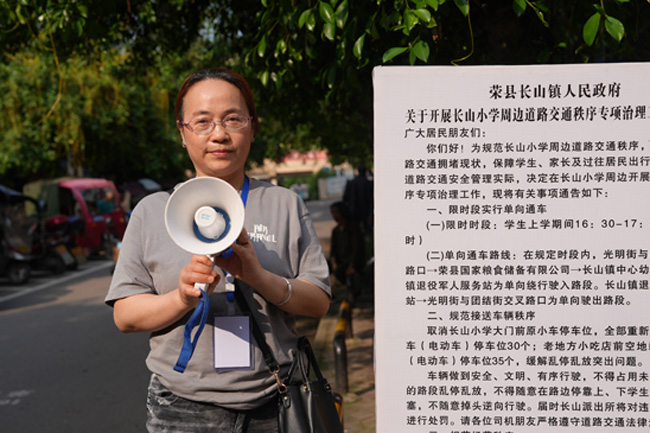 荣县长山镇人民政府
关于开展长山小学周边道路交通秩序专项治理
广大居民朋友们：
你们好！为规范长山小学周边道路交通秩序，
路交通拥堵现状，保障学生、家长及过往居民出行
道路交通安全管理实际，决定在长山小学周边开展
序专项治理工作，现将有关事项通告如下：
一、限时段实行单向通车
(一)限时时段：学生上学期间16：30-17：
时）
(二)单向通车路线：在规定时段内，光明街与
路口→荣县国家粮食储备有限公司→长山镇中心幼
镇退役军人服务站为单向绕行驶入路段。长山镇退
站→光明街与团结街交叉路口为单向驶出路段。
二、规范接送车辆秩序
取消长山小学大门前原小车停车位，全部重新
车（电动车）停车位30个；老地方小吃店前空地
（电动车）停车位35个，缓解乱停乱放突出问题。
车辆做到安全、文明、有序行驶，不得占用未
的路段乱停乱放，不得随意在路边停靠上、下学生
塞，不随意掉头逆向行驶。届时长山派出所将对违
进行处罚。请各位司机朋友严格遵守道路交通法律